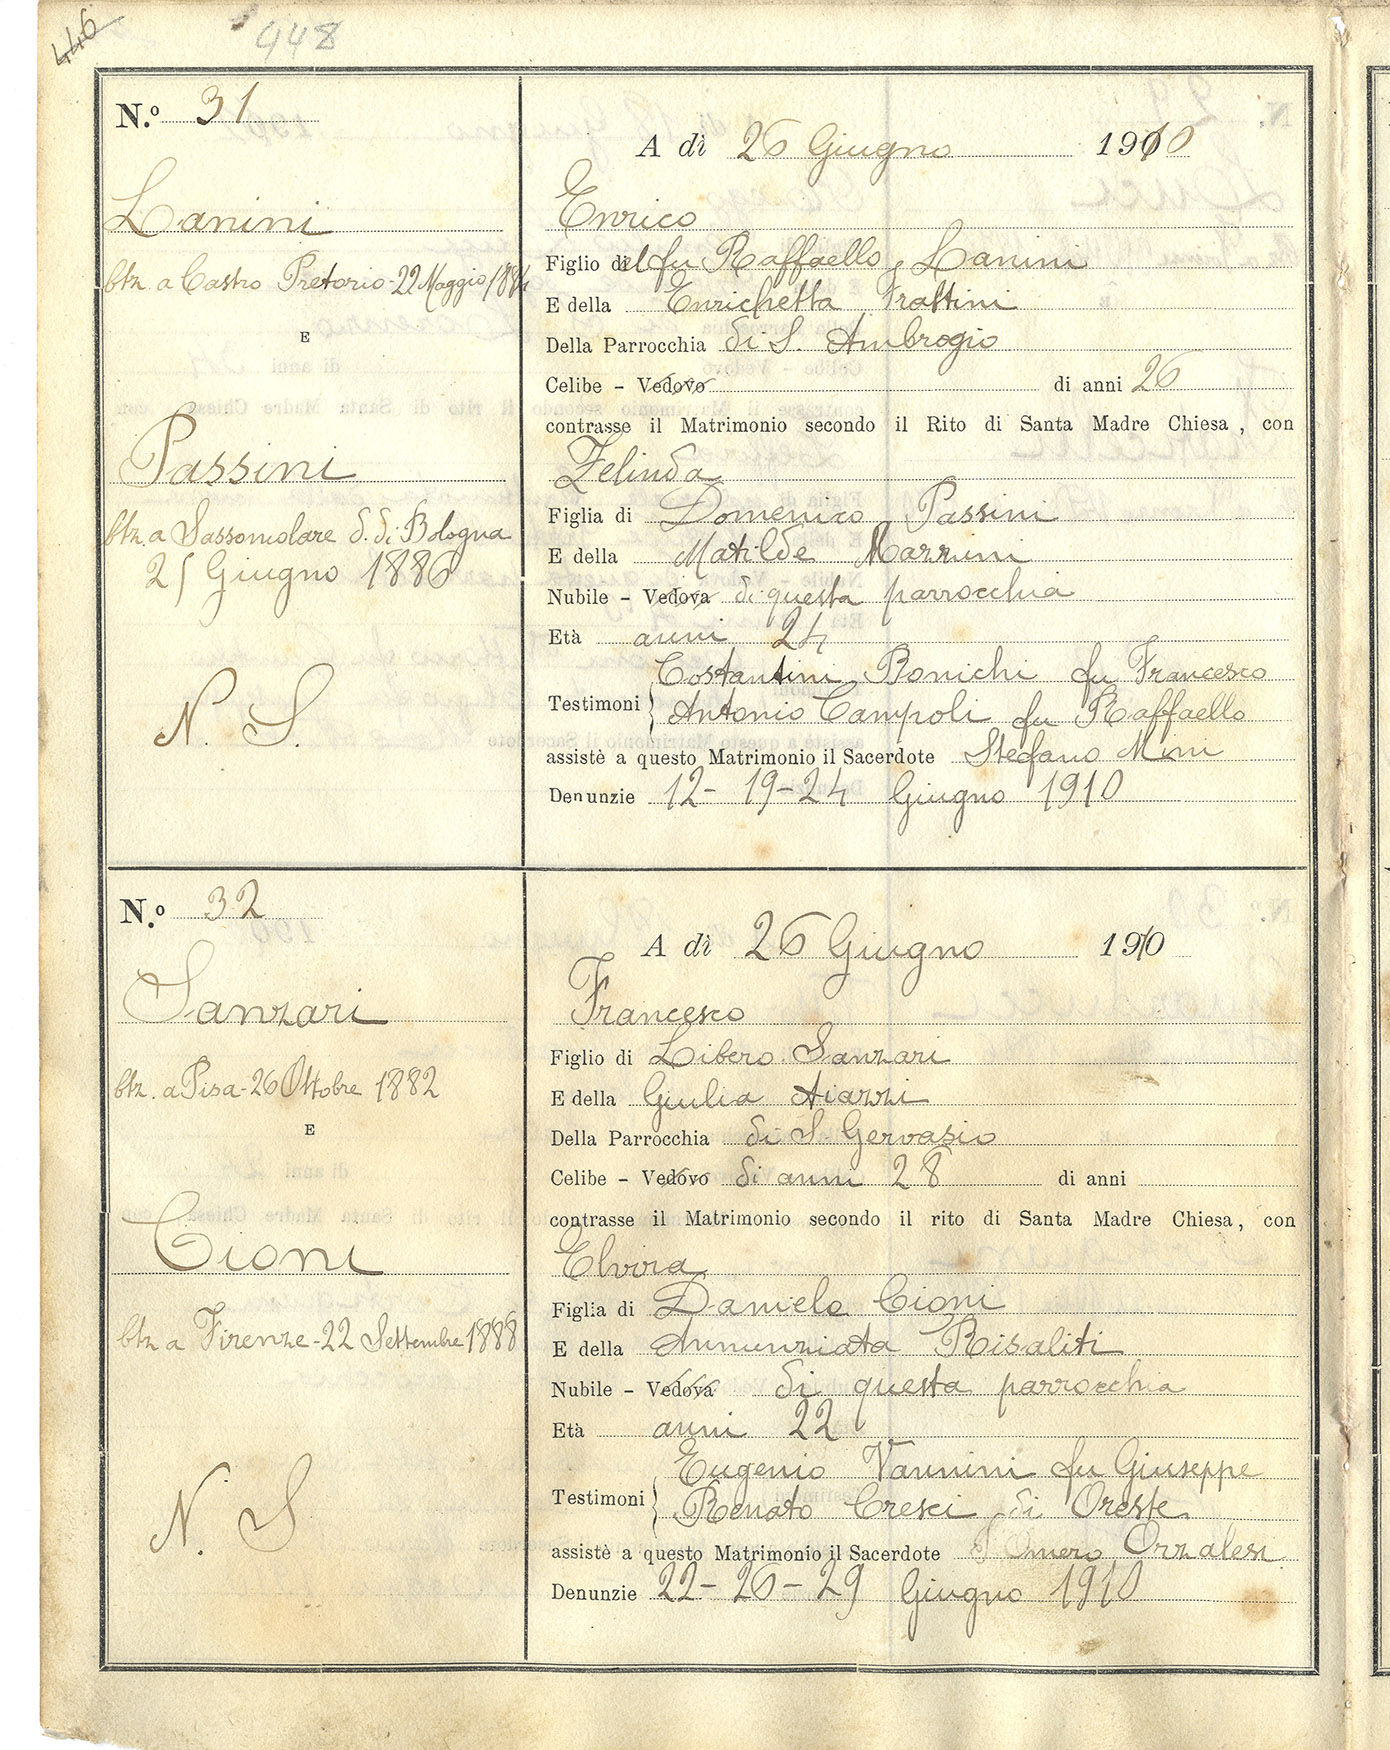 446
448
N.º 31
Lanini
btz. a Castro Pretorio - 22 Maggio 1884
E
Passini
btz. a Sassomolare d. di Bologna
25 Giugno 1886
N. S.
A dì 26 Giugno 1910
Enrico
Figlio del fu Raffaello Lanini
E della Enrichetta Frattini
Della Parrocchia di S. Ambrogio
Celibe - Vedovo di anni 26
contrasse il Matrimonio secondo il Rito di Santa Madre Chiesa, con
Zelinda
Figlia di Domenico Passini
E della Matilde
Nubile - Vedova di questa parrocchia
Età anni 24
Costantini Bonichi fu Francesco
Testimoni
Antonio Campoli fu Raffaello
assistè a questo Matrimonio il Sacerdote Stefano Mini
Denunzie 12 - 19 - 24 Giugno 1910
N.º 32
Sanzari
btz. a Pisa - 26 Ottobre 1882
E
Cioni
btz a Firenze - 22 Settembre 1888
N. S
A dì 26 Giugno 1910
Francesco
Figlio di Libero Sanzari
E della Giulia Aiazzi
Della Parrocchia di S. Gervasio
Celibe - Vedovo di anni 28 di anni
contrasse il Matrimonio secondo il rito di Santa Madre Chiesa, con
Elvira
Figlia di Daniele Cioni
E della Annunziata Risaliti
Nubile - Vedova di questa parrocchia
Età anni 22
Eugenio Vannini fu Giuseppe
Testimoni
Renato Cresci di Oreste
assistè a questo Matrimonio il Sacerdote Omero Orzalesi
Denunzie 22 - 26 - 29 Giugno 1910